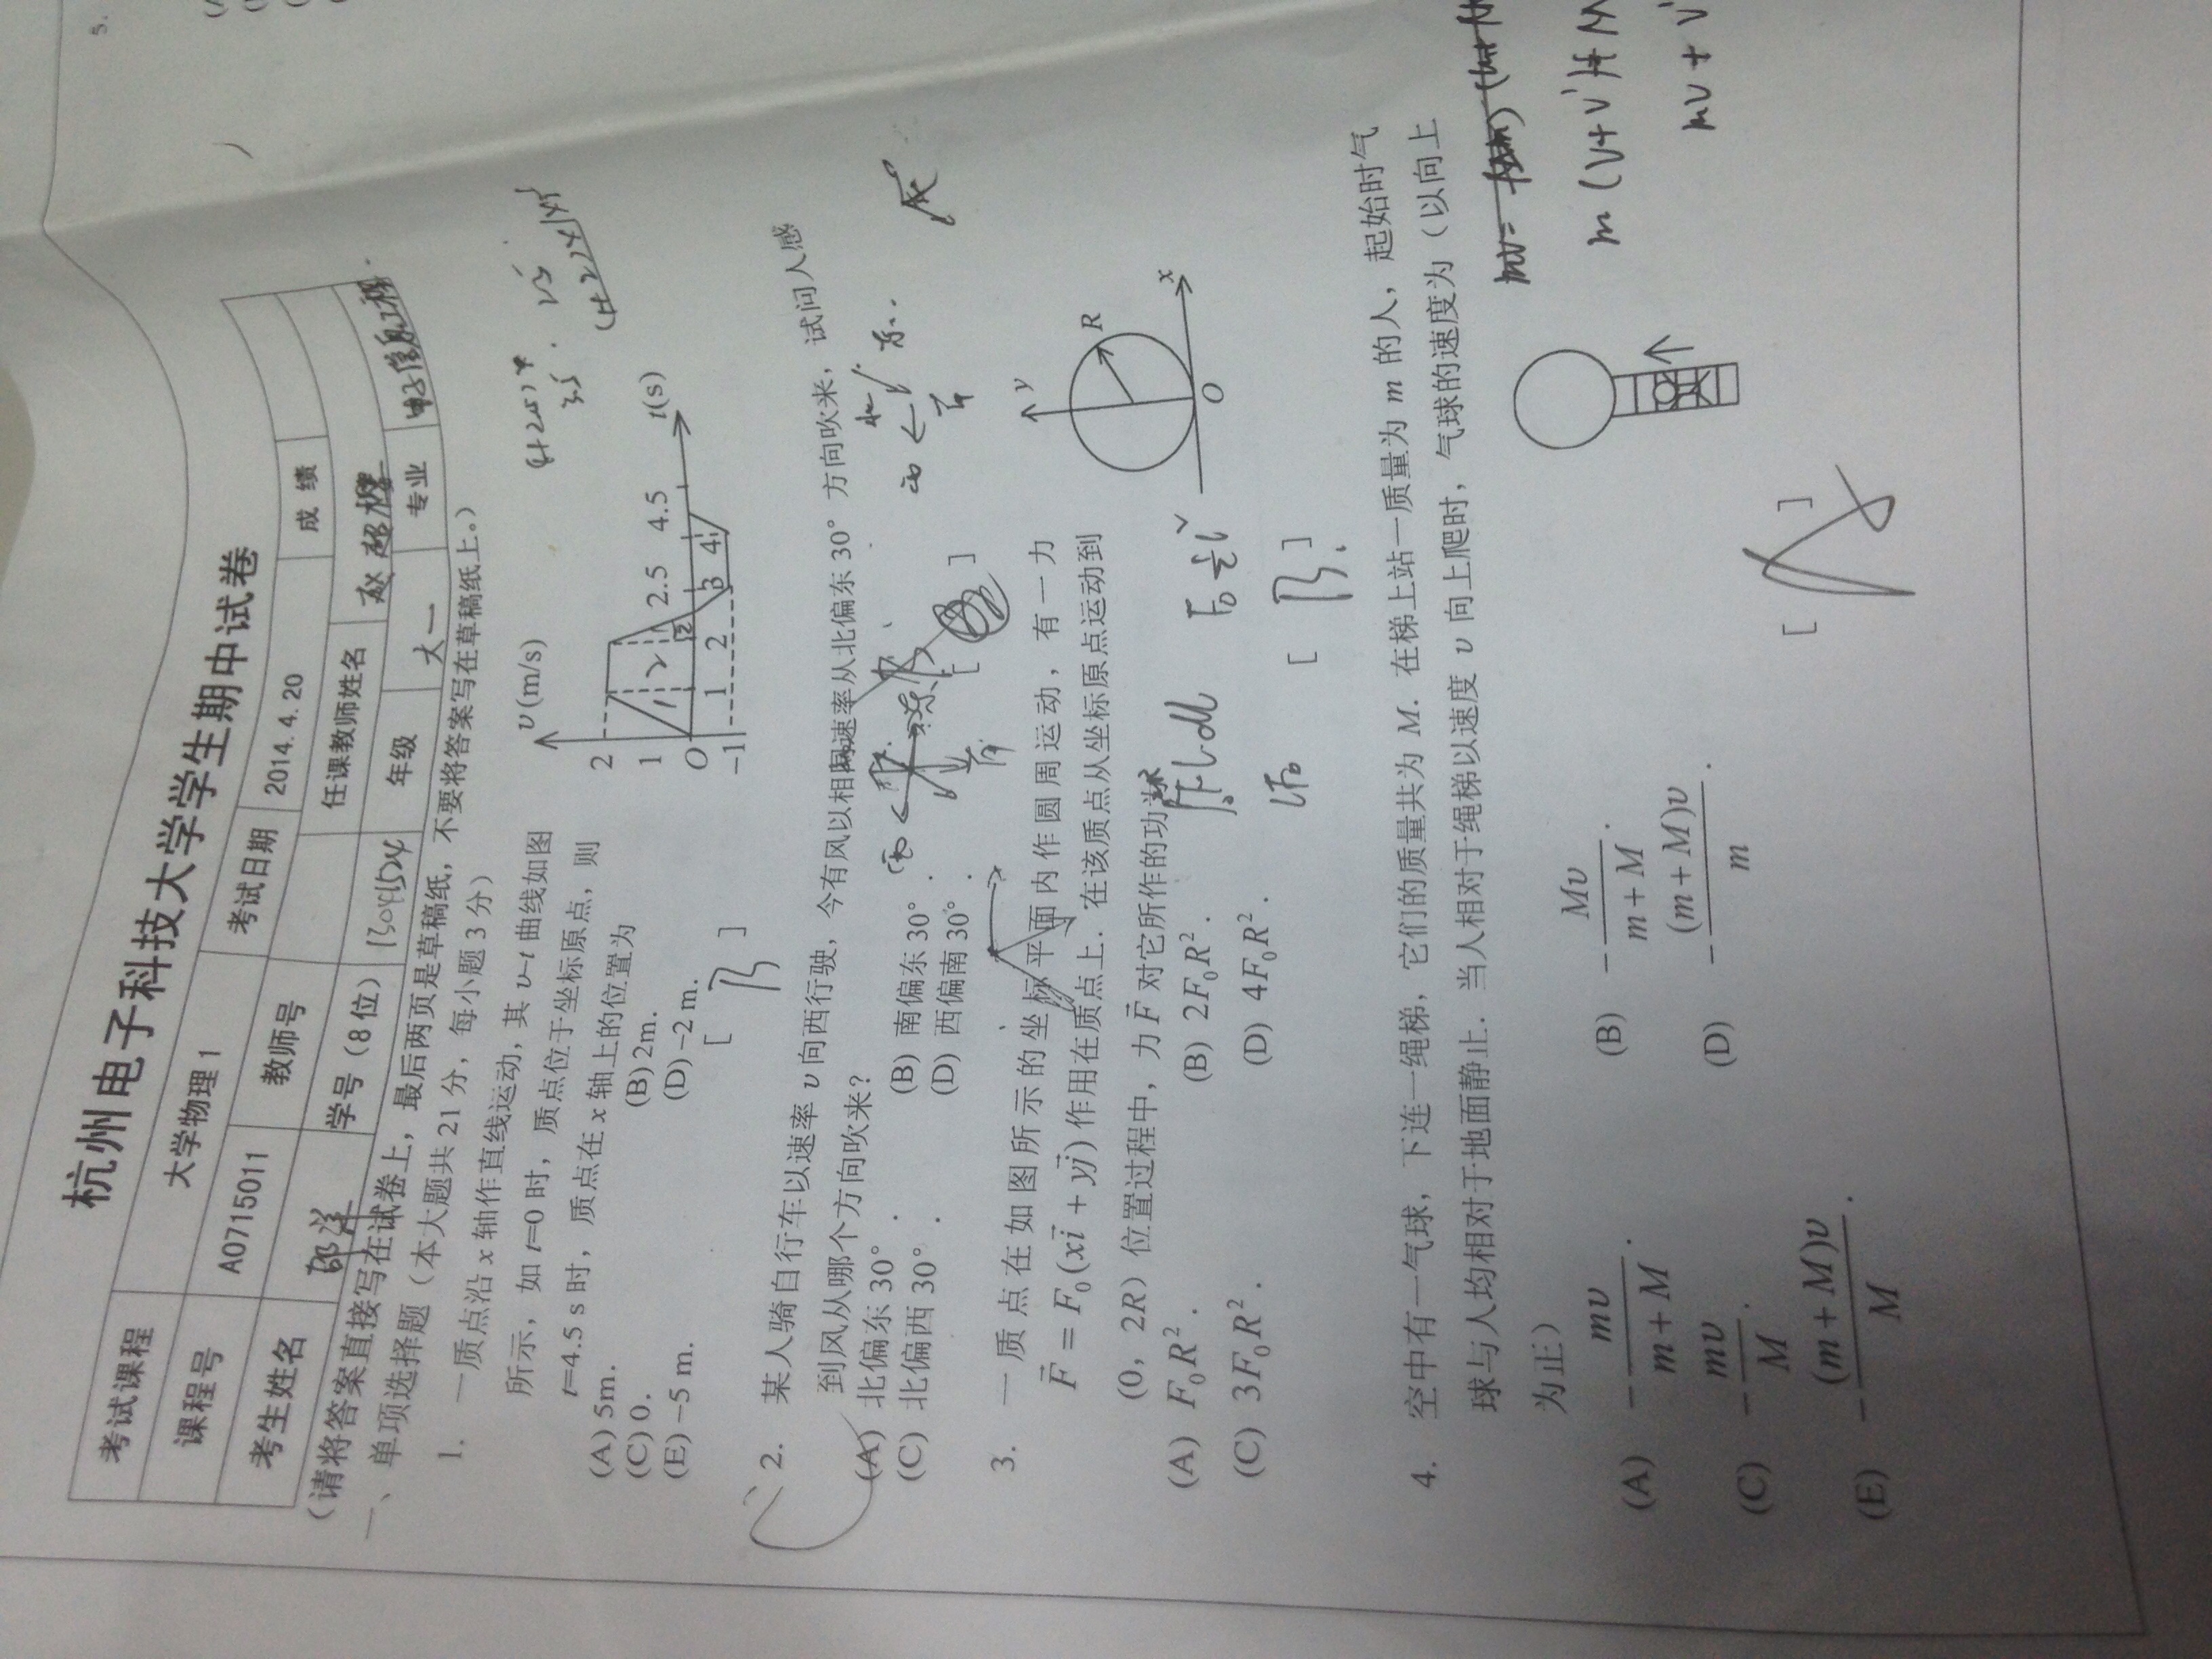 杭州电子科技大学学生期中试卷
考试课程 大学物理1 考试日期 2014.4.20 成 绩
课程号 A0715011 教师号 任课教师姓名
考生姓名 学号（8位） 13041524 年级 大一 专业 电子信息工程
（请将答案直接写在试卷上，最后两页是草稿纸，不要将答案写在草稿纸上。）
一、单项选择题（本大题共21分，每小题3分）
1. 一质点沿 x 轴作直线运动，其 v–t 曲线如图
所示，如 t=0 时，质点位于坐标原点，则
t=4.5 s 时，质点在 x 轴上的位置为
(A) 5m. (B) 2m.
(C) 0. (D) –2 m.
(E) –5 m. [ B ]
v(m/s)
2
1
O
–1
1 2 3 4
2.5 4.5 t(s)
2. 某人骑自行车以速率 v 向西行驶，今有风以相同速率从北偏东 30° 方向吹来，试问人感
到风从哪个方向吹来？
(A) 北偏东 30° . (B) 南偏东 30° .
(C) 北偏西 30° . (D) 西偏南 30° .
[ ]
西 东 北 东
西
3. 一质点在如图所示的坐标平面内作圆周运动，有一力
F⃗ = F₀(xi⃗ + yj⃗) 作用在质点上．在该质点从坐标原点运动到
(0，2R）位置过程中，力 F⃗ 对它所作的功为
(A) F₀R² . (B) 2F₀R² .
(C) 3F₀R² . (D) 4F₀R² .
[ B ]
y
R
x
O
4. 空中有一气球，下连一绳梯，它们的质量共为 M. 在梯上站一质量为 m 的人，起始时气
球与人均相对于地面静止．当人相对于绳梯以速度 v 向上爬时，气球的速度为（以向上
为正）
(A) −mv/(m + M) . (B) −Mv/(m + M) .
(C) −mv/M . (D) −(m + M)v/m .
(E) −(m + M)v/M .
[ A ]
m (v+v')+ M
mv + v'
5.